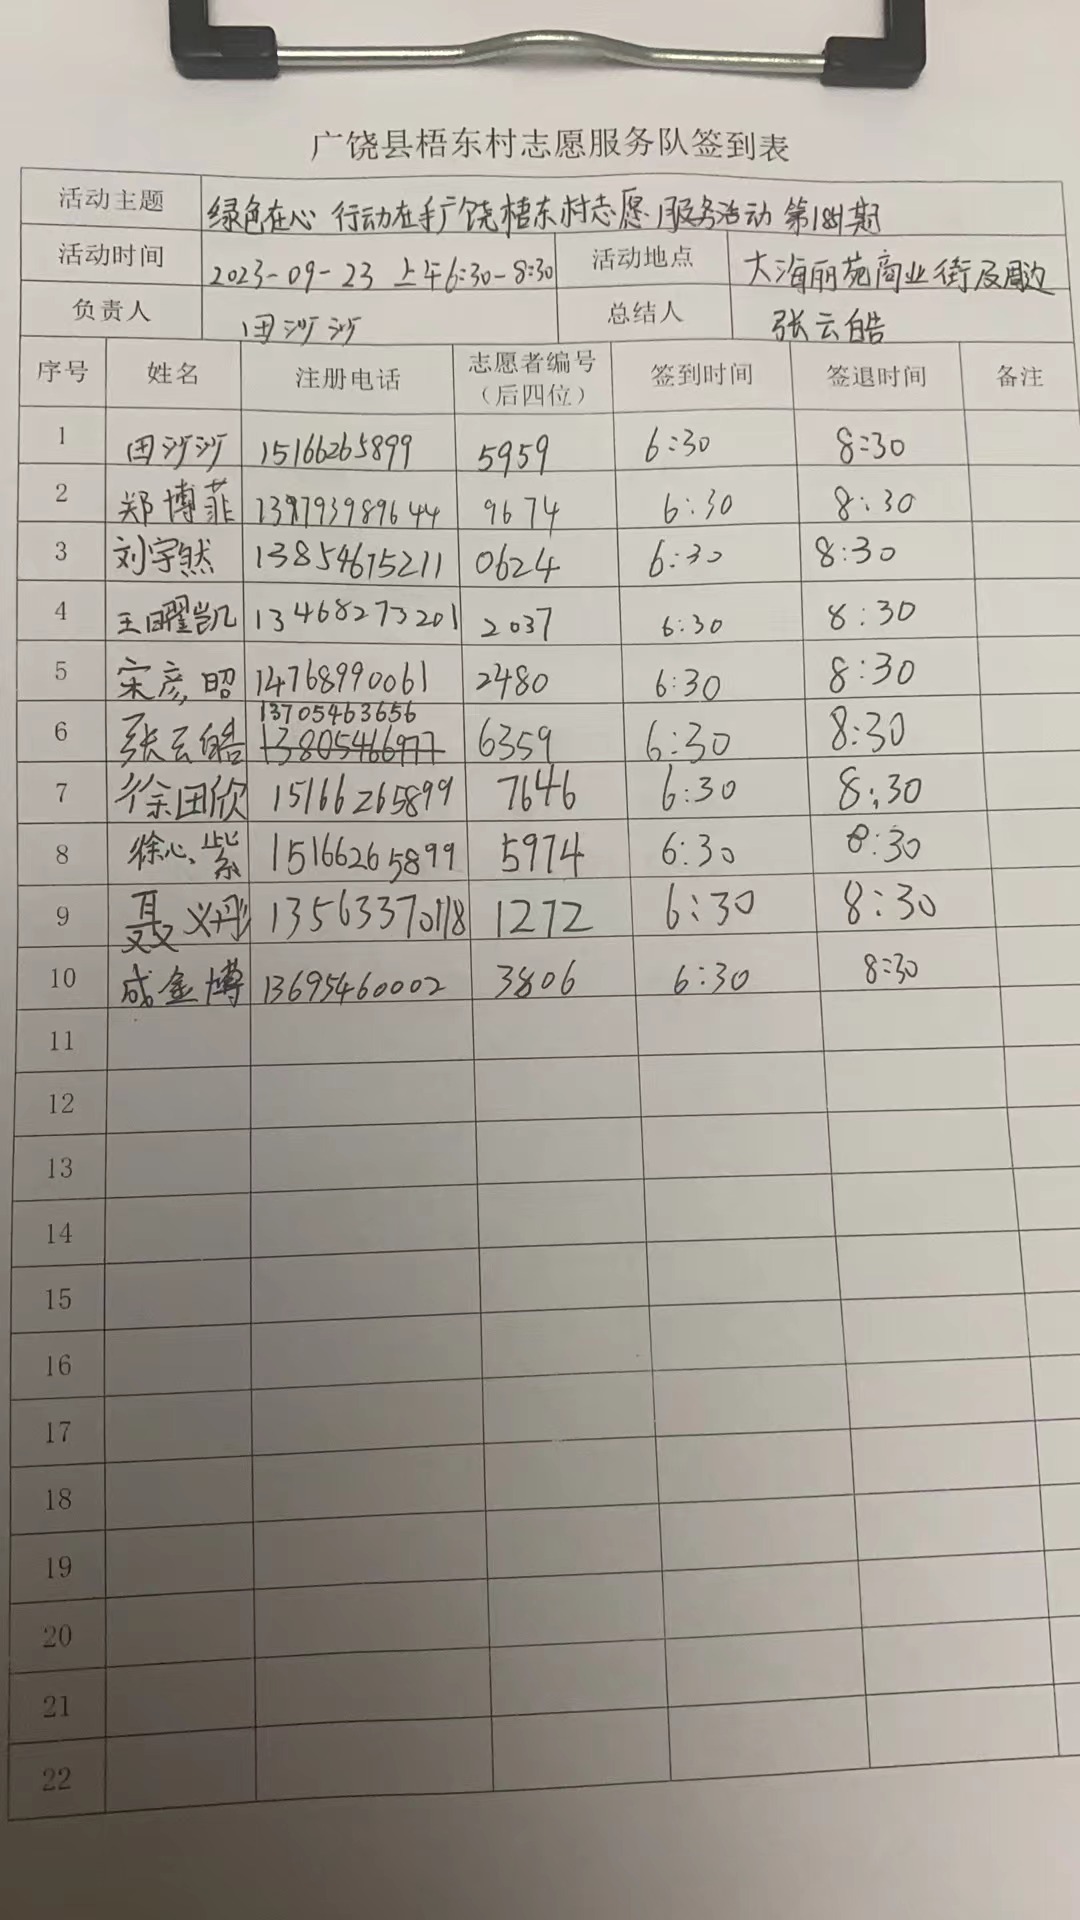 广饶县梧东村志愿服务队签到表
活动主题 绿色在心 行动在手广饶梧东村志愿服务活动 第181期
活动时间 2023-09-23 上午6:30-8:30 活动地点 大海丽苑商业街及周边
负责人 田沙沙 总结人 张云皓
序号 姓名 注册电话 志愿者编号（后四位） 签到时间 签退时间 备注
1 田沙沙 15166265899 5959 6:30 8:30
2 郑博菲 9674 6:30 8:30
3 刘宇然 13854675211 0624 6:30 8:30
4 王曜凯 13468273201 2037 6:30 8:30
5 宋彦昭 14768990061 2480 6:30 8:30
13705463656
6 张云皓 13805466977 6359 6:30 8:30
7 徐田欣 15166265899 7646 6:30 8:30
8 徐心紫 15166265899 5974 6:30 8:30
9 聂义彤 13563370118 1272 6:30 8:30
10 成金博 13695460002 3806 6:30 8:30
11
12
13
14
15
16
17
18
19
20
21
22